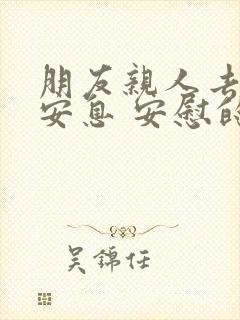 朋友親人去
安息 安慰的
吳錦任